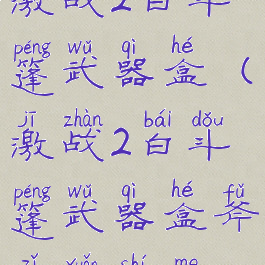 激战2白斗
péng wǔ qì hé
篷武器盒（
jī zhàn bái dǒu
激战2白斗
péng wǔ qì hé fǔ
篷武器盒斧
zǐ xuǎn shí me